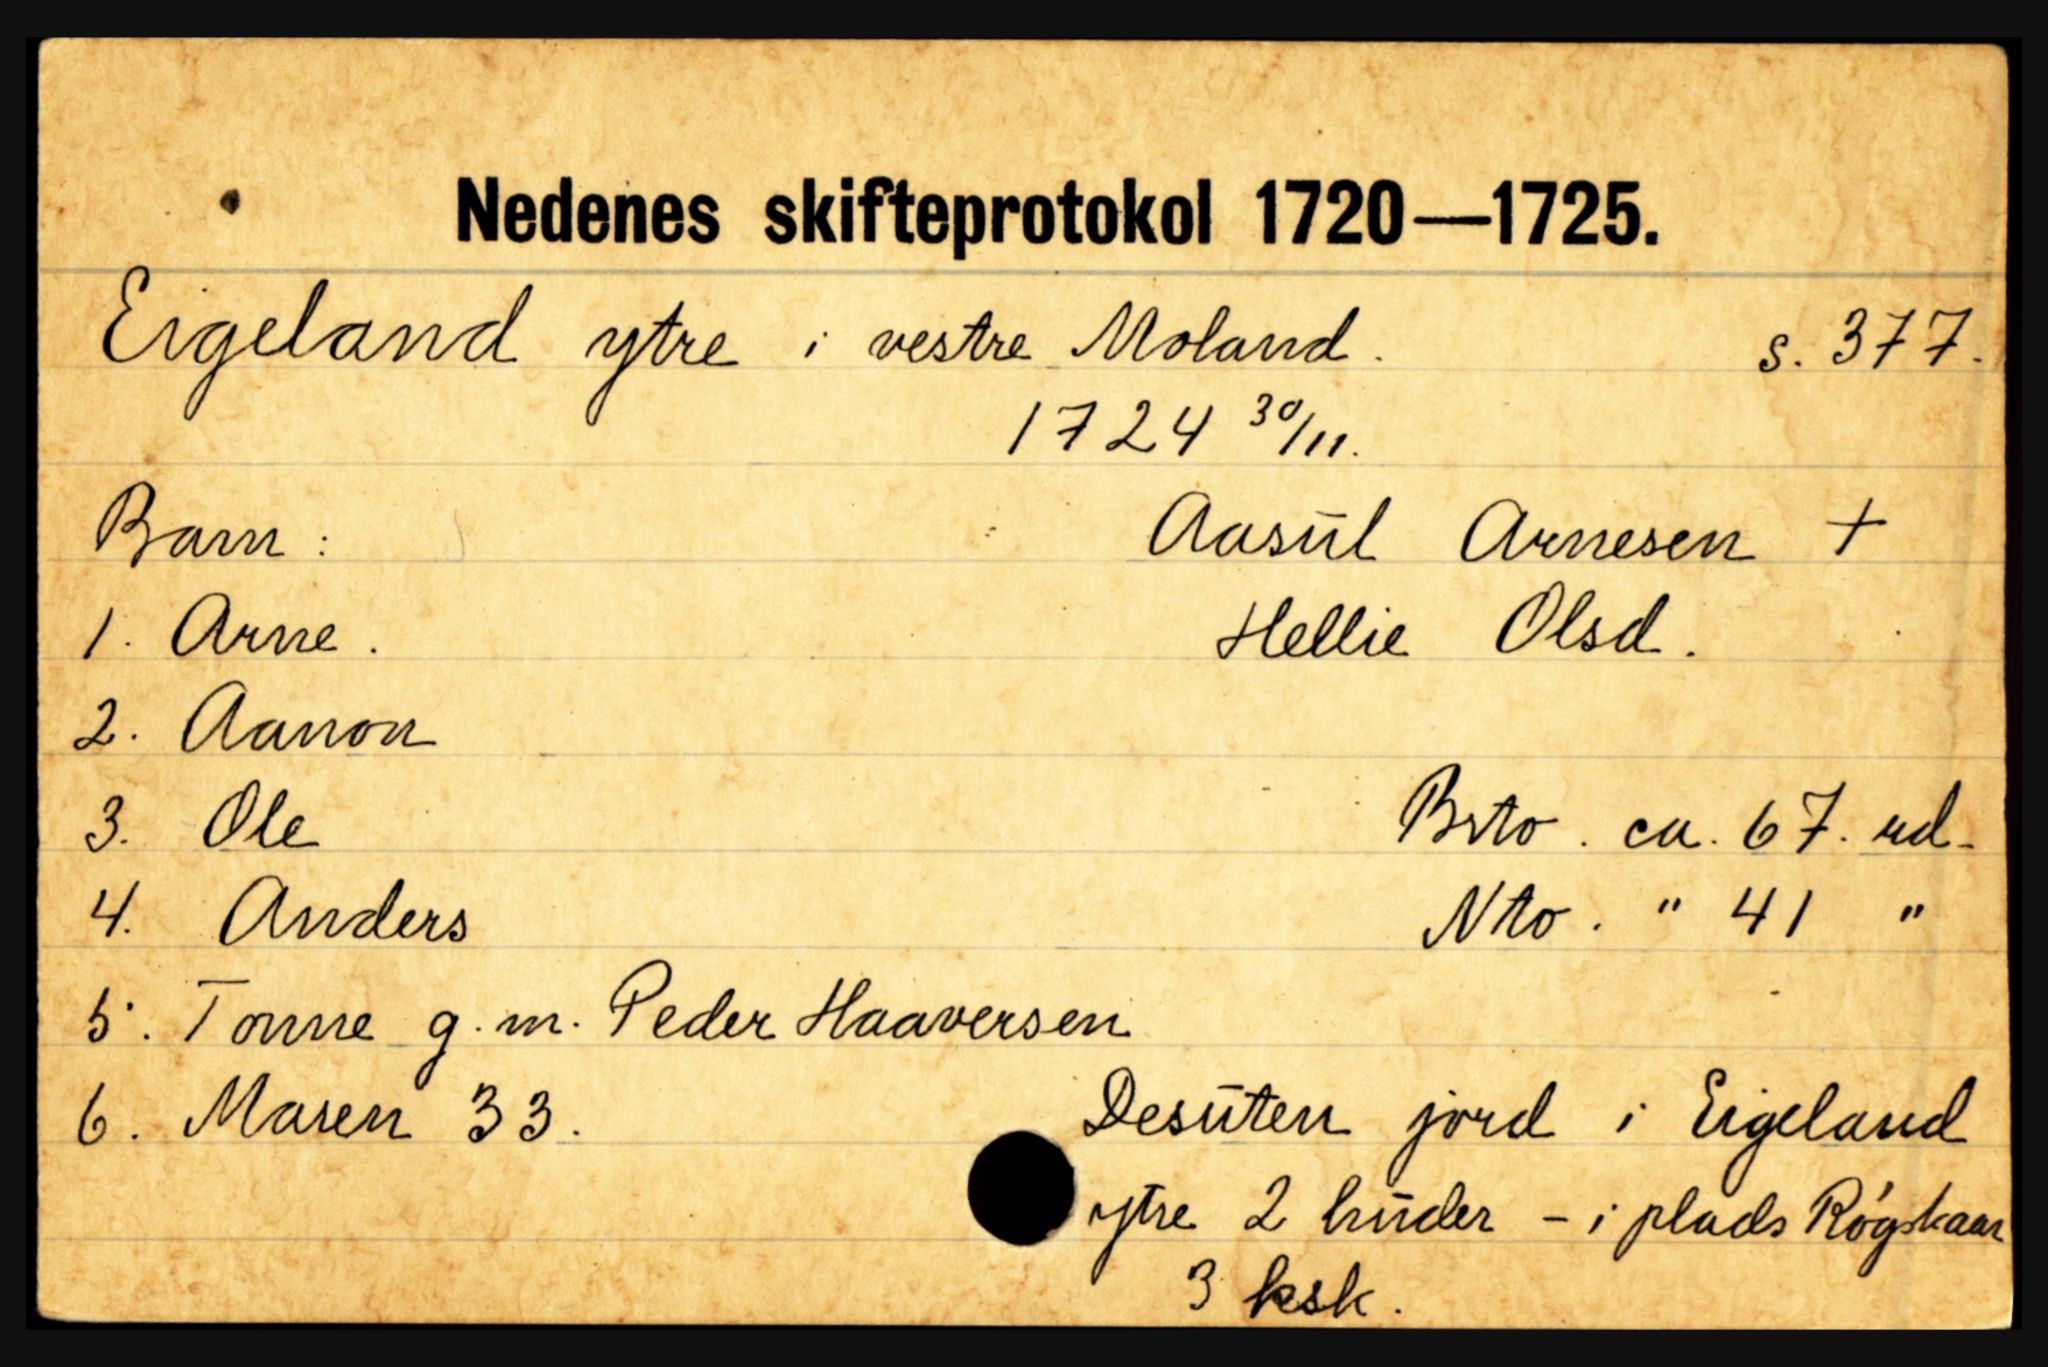 Nedenes skifteprotokol 1720—1725.
Eigeland ytre i vestre Moland. s. 377.
1724 30/11.
Barn: Aasūl Arnesen +
1. Arne. Hellie Olsd.
2. Aanon
3. Ole Brto. ca. 67. rd-
4. Anders Nto. " 41 "
5. Tonne g. m. Peder Haaversen
6. Maren 33. Desūten jord i Eigeland
ytre 2 hūder - i plads Røgskaar
3 ksk.